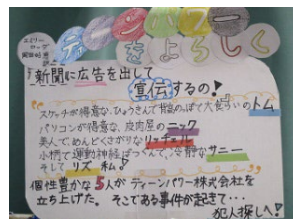 ティーンパワー
をよろしく
新聞に広告を出して
宣伝するの!
スケッチが得意な、ひょうきんで背高のっぽで大食らいのトム
パソコンが得意な、皮肉屋のニック
美人で、めんどくさがりなリッチェル
小柄で運動神経ばつぐんで、冷静なサニー
そして リズ 私♪
個性豊かな5人がティーンパワー株式会社を
立ち上げた。 そこである事件が起きて…
犯人探し!